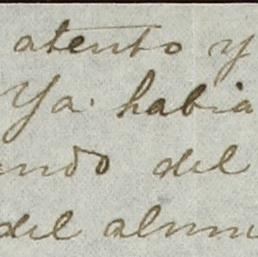 atento y
Ya. habia
ndo del
del alum